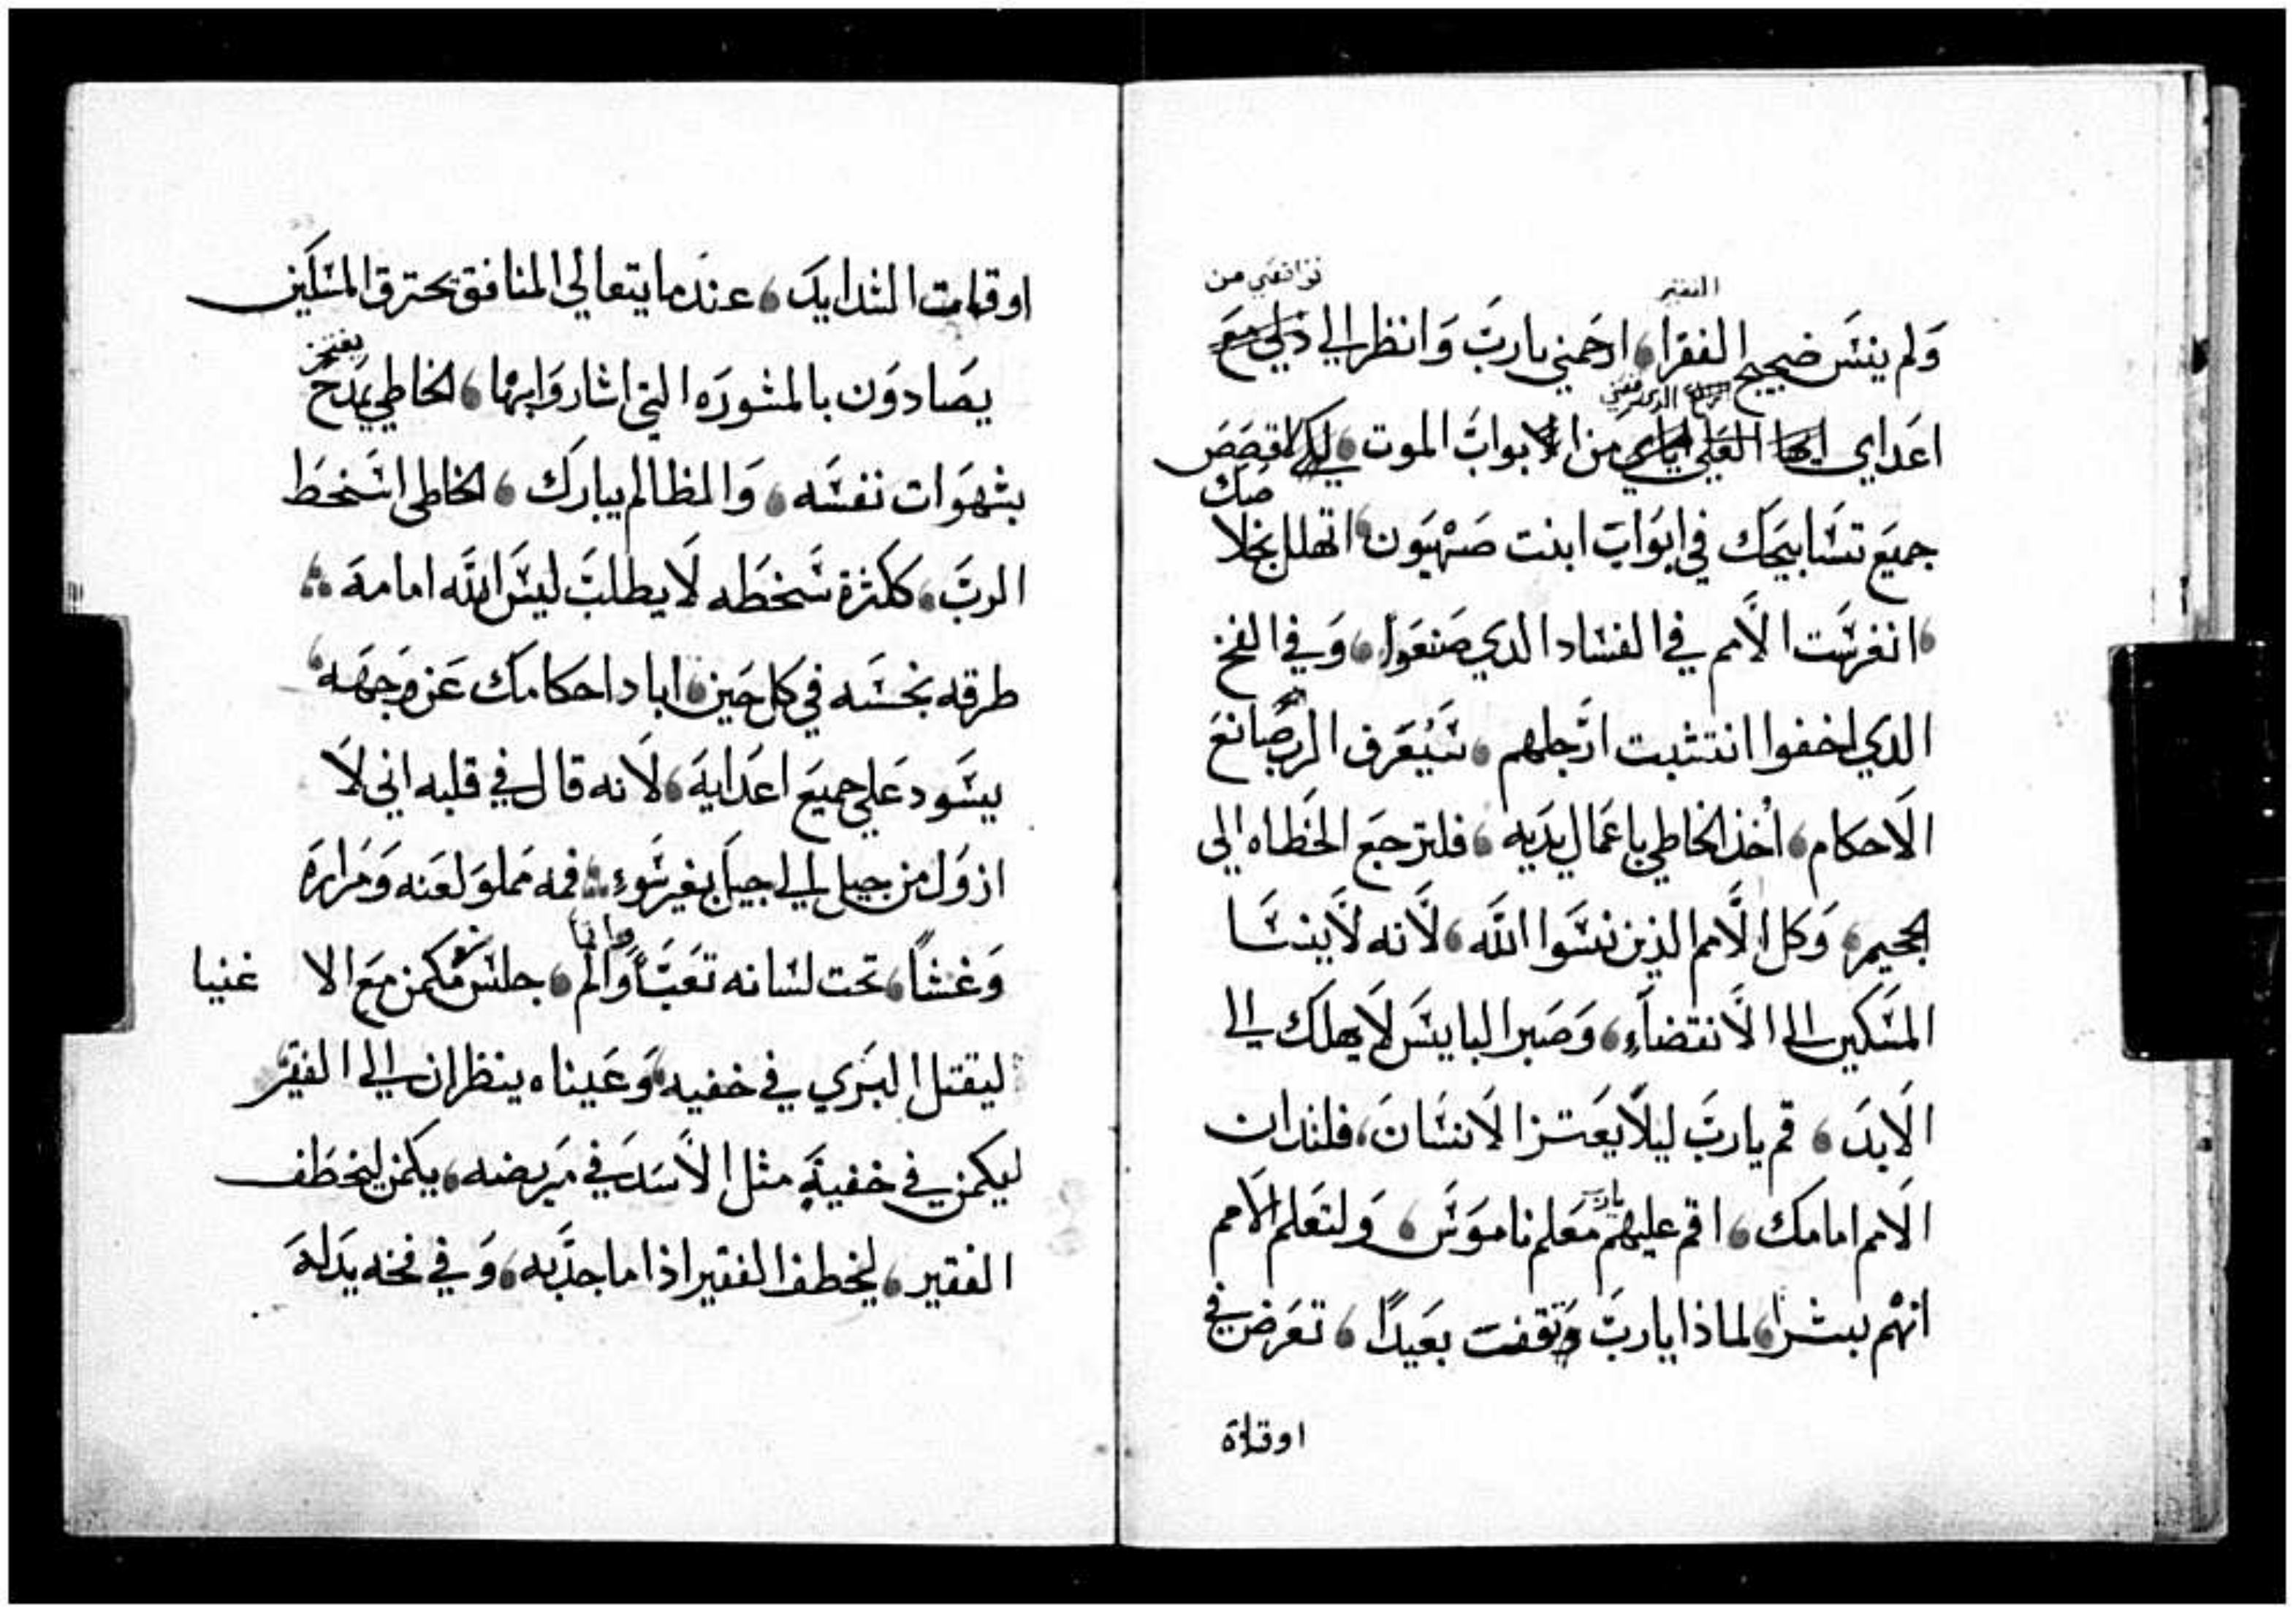 تواضعي من
الفقير
ولم ينس ضجيج الفقرا، ارحمني يارب وانظر الي ذلي مع
الرافع
اعداي ايها العلي اياي من الابواب الموت، لكي اقصص
جميع تسابيحك في ابواب ابنت صهيون، اتهلل بخلاصك
، انغرست الامم في الفساد الدي صنعوا، وفي الفخ
الدي اخفوا انتشبت ارجلهم، سيعرف الرب صانع
الاحكام، اخذ الخاطي باعمال يديه، فلترجع الخطاه الى
الجحيم، وكل الامم الذين نسوا الله، لانه لا ينسا
المسكين الى الانقضاء، وصبر البايس لا يهلك الى
الابد، قم يارب ليلا يعتز الانسان، فلتدان
الامم امامك، اقم عليهم يارب معلم ناموس، ولتعلم الامم
انهم بشرا، لماذا يارب وقفت بعيدا، تعرض في
اوقاة
اوقات الشدايد، عندما يتعالي المنافق يحترق المسكين
يفتخر
يصادون بالمشوره التي اشاروا بها، الخاطي يمدح
بشهوات نفسه، والظالم يبارك، الخاطى اسخط
الرب، ككثرة سخطه لا يطلب ليس الله امامه
طرقه نجسه في كل حين، اباد احكامك عن وجهه،
يسود علي جميع اعدايه، لانه قال في قلبه اني لا
ازول من جيل الي جيل بغير سوء فمه مملو لعنه ومراره
وغشا، تحت لسانه تعبا والم، جلس مكمن مع الا غنيا
ليقتل البري في خفيه، وعيناه ينظران الى الفقير
ليكمن في خفية مثل الاسد في مربضه، يكمن ليخطف
الفقير، ليخطف الفقير اذا ما جذبه، وفي فخه يدله